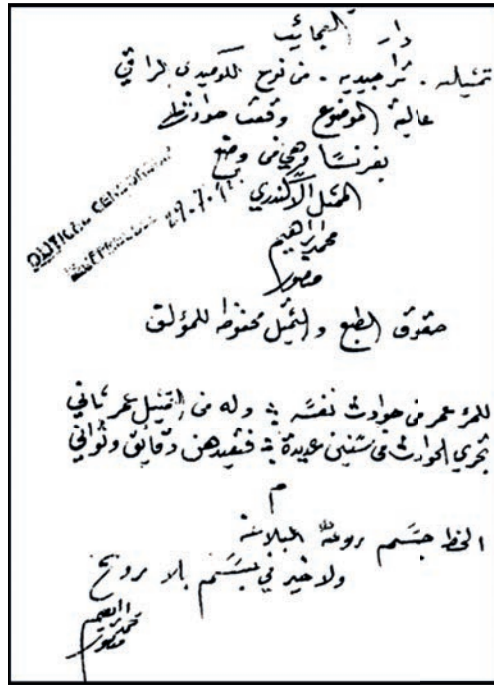 دار العجائب
تمثيليه . تراجيديه . من نوع الكوميدى الراقي
عالية الموضوع وقعت حوادثها
بفرنسا وهي من وضع
الممثل الاسكندري
محمد ابراهيم
منصور
حقوق الطبع والتمثيل محفوظه للمؤلف
للمرء عمر من حوادث نفسه وله من التمثيل عمر ثاني
تجري الحوادث في سنين عديدة فتعيدهن دقائق وثواني
م
الخط جسم روحه البلاغة
ولا خير في جسم بلا روح
محمد ابراهيم
منصور